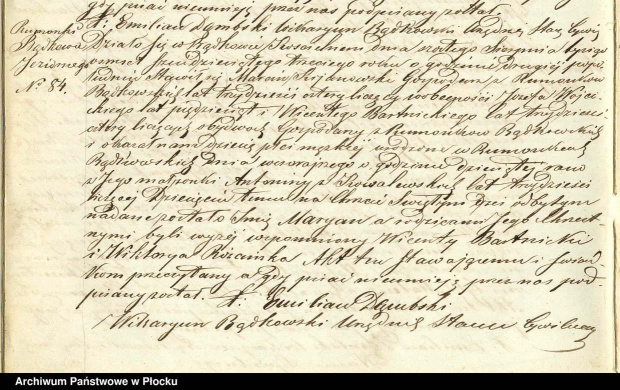 gdy pisać nieumieją przez nas podpisany został.
X: Emilian Dąmbski Wikaryusz Bądkowski Urzędnik Stanu Cywil
Rumonki
Bądkowa
Jeziornego
No 84.
Działo się w Bądkowie Kościelnem dnia szóstego Sierpnia tysiąc
osmset siedmdziesiątego trzeciego roku o godzinie Drugiej popo
łudniu Stawił się Marcin Gospodarz z Rumonków
Bądkowskich lat trzydzieści cztery liczący w obecności Józefa Wojcic
kiego lat pięćdziesiąt i Wicentego Bartnickiego lat trzydzieści
cztery liczących obydwóch Gospodarzy z Rumonków Bądkowskich
i okazał nam dziecię płci męzkiej urodzone w Rumonkach
Bądkowskich dnia wczorajszego o godzinie dziewiątej rano
z Jego małżonki Antoniny z Kowalewskich lat trzydzieści
liczącej Dziecięciu temu na Chrzcie Świętym dziś odbytym
nadane zostało Imię Maryan a rodzicami Jego Chrzest
nymi byli wyżej wspomniony Wicenty Bartnicki
i Wiktorya Rozańska Akt ten stawającemu i świad
kom przeczytany a gdy pisać nieumieją przez nas pod
pisany został. X: Emilian Dąmbski
Wikaryusz Bądkowski Urzędnik Stanu Cywilnego
Archiwum Państwowe w Płocku